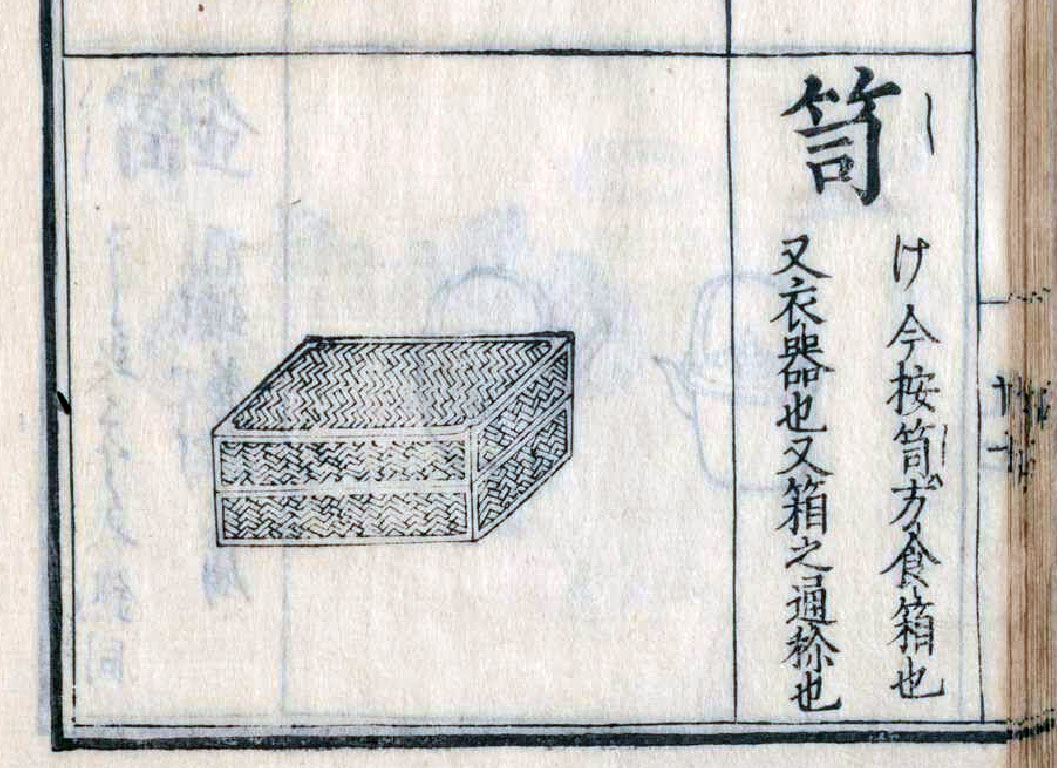 笥
し
け 今按笥方食箱也
し
又衣器也又箱之通称也